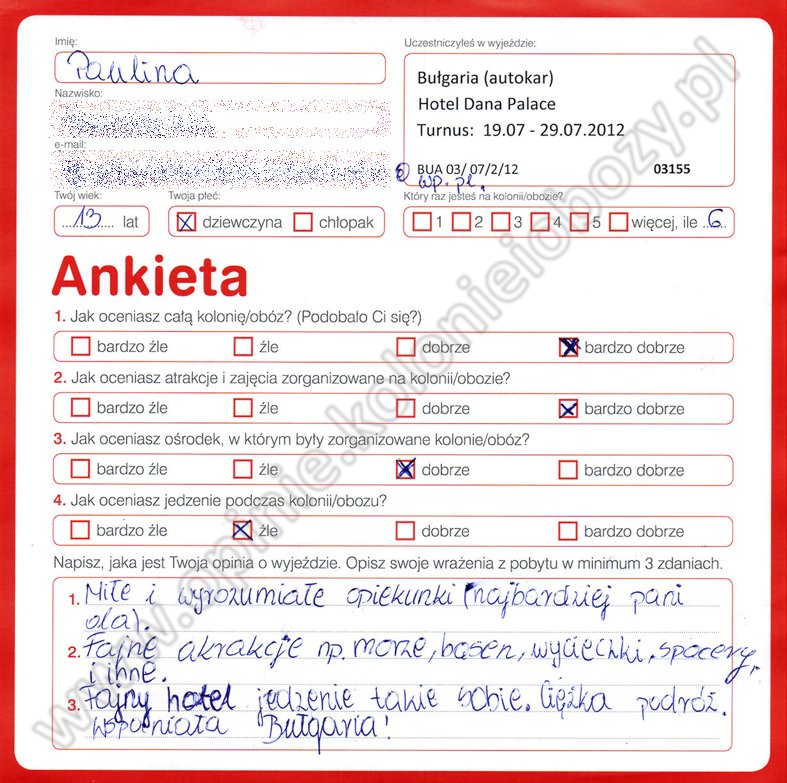 Imię:
Paulina
Uczestniczyłeś w wyjeździe:
Bułgaria (autokar)
Hotel Dana Palace
Turnus: 19.07 - 29.07.2012
BUA 03/ 07/2/12 03155
Nazwisko:
e-mail:
@wp.pl.
Twój wiek:
13 lat
Twoja płeć:
dziewczyna chłopak
Który raz jesteś na kolonii/obozie?
1 2 3 4 5 więcej, ile 6
Ankieta
1. Jak oceniasz całą kolonię/obóz? (Podobało Ci się?)
bardzo źle źle dobrze bardzo dobrze
2. Jak oceniasz atrakcje i zajęcia zorganizowane na kolonii/obozie?
bardzo źle źle dobrze bardzo dobrze
3. Jak oceniasz ośrodek, w którym były zorganizowane kolonie/obóz?
bardzo źle źle dobrze bardzo dobrze
4. Jak oceniasz jedzenie podczas kolonii/obozu?
bardzo źle źle dobrze bardzo dobrze
Napisz, jaka jest Twoja opinia o wyjeździe. Opisz swoje wrażenia z pobytu w minimum 3 zdaniach.
1. Miłe i wyrozumiałe opiekunki (najbardziej pani
ola).
2. Fajne akrakcje np. morze, basen, wycieczki, spacery,
i inne.
3. Fajny hotel jedzenie takie sobie. Ciężka podróż.
Wspaniała Bułgaria!
www.opinie.kolonieiobozy.pl